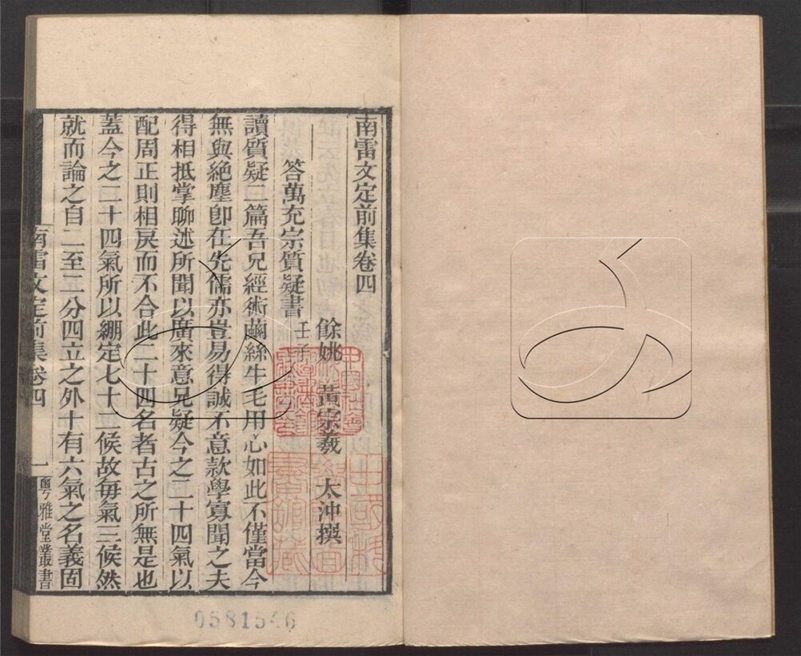 南雷文定前集卷四
餘姚 黃宗羲 太沖撰
答萬充宗質疑書 壬子
讀質疑二篇吾兄經術繭絲牛毛用心如此不僅當今
無與絶塵卽在先儒亦豈易得誠不意款學寡聞之夫
得相抵掌聊述所聞以廣來意兄疑今之二十四氣以
配周正則相戾而不合此二十四名者古之所無是也
蓋今之二十四氣所以綳定七十二候故每氣三候然
就而論之自二至二分四立之外十有六氣之名義固
南雷文定前集卷四 一 粤雅堂叢書
0581546